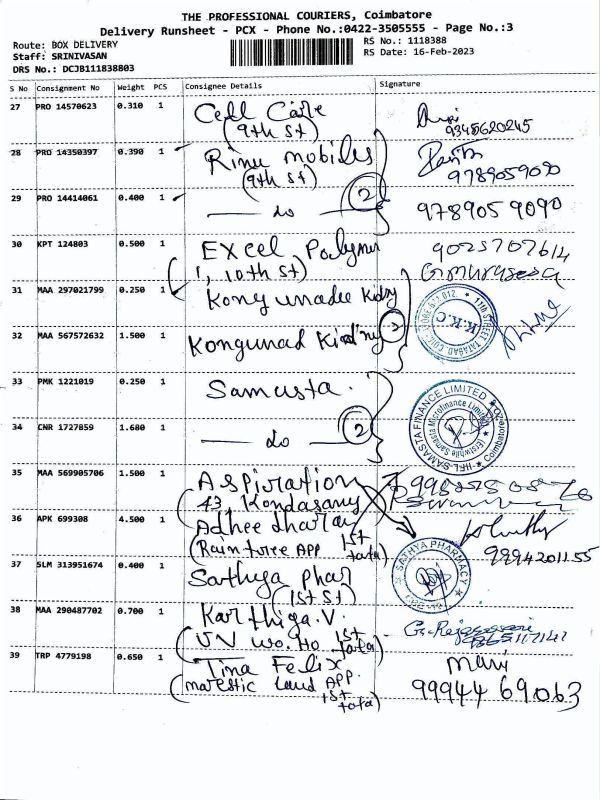 THE PROFESSIONAL COURIERS, Coimbatore
Delivery Runsheet - PCX - Phone No.:0422-3505555 - Page No.:3
Route: BOX DELIVERY
RS No.: 1118388
Staff: SRINIVASAN
RS Date: 16-Feb-2023
DRS No.: DCJB111838803
S No Consignment No Weight PCS Consignee Details Signature
27 PRO 14570623 0.310 1 Cell Care
(9th St) 9345620245
28 PRO 14350397 0.390 1 Rinu mobiles
(9th St) 9789059090
29 PRO 14414061 0.400 1 — do — 2 9789059090
30 KPT 124803 0.500 1 Excel Polymer 9025707614
1, 10th St)
31 MAA 297021799 0.250 1 Kongunadu Kidny
32 MAA 567572632 1.500 1 Kongunad Kidny 2
K.K.C
33 PMK 1221019 0.250 1 Samasta.
34 CNR 1727859 1.680 1 — do — 2
IIFL-SAMASTA FINANCE LIMITED
Erstwhile Samasta Microfinance Limited
Coimbatore
35 MAA 569905706 1.500 1 Aspiration
(43 Kondasamy
36 APK 699308 4.500 1 Adheedharan
(Raintree APP 1st tata) 9994201155
37 SLM 313951674 0.400 1 Sathya Phar
(1st St)
SATHYA PHARMACY
38 MAA 290487702 0.700 1 Karthiga.V.
1st tata)
39 TRP 4779198 0.650 1 Tina Felix mani
(majestic Land APP. 99944 69063
1st tata)